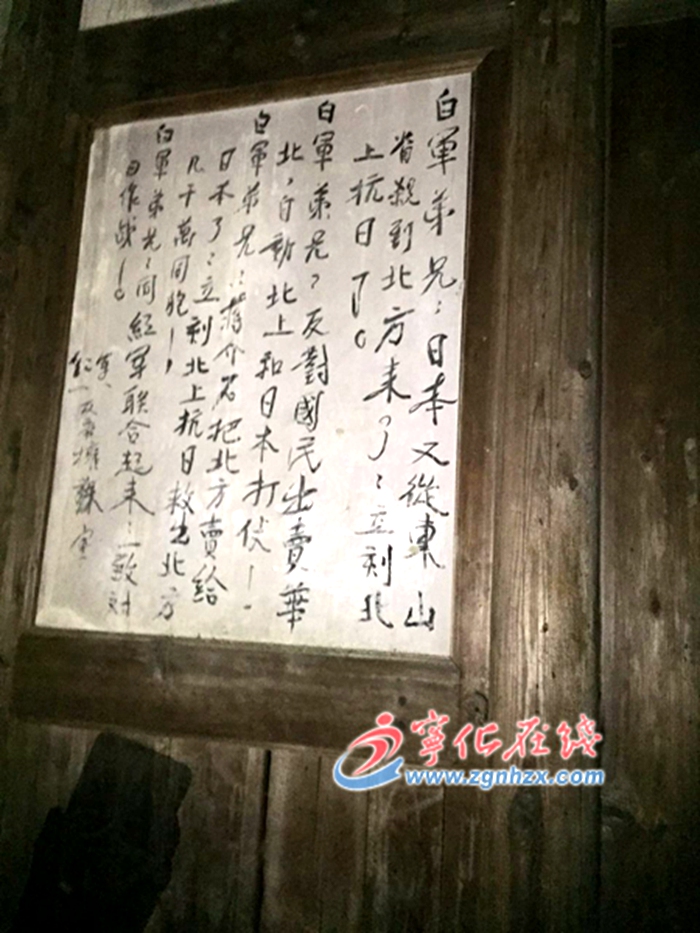 白軍弟兄：日本又從東山
省殺到北方来了；立刻北
上抗日了。
白軍弟兄？反對國民出賣華
北，自動北上和日本打伏！
白軍弟兄：蔣介石把北方賣給
日本了；立刻北上抗日救出北方
几千萬同胞！，
白軍弟兄；同紅軍联合起来；一致对
日作战！。
寧化在线
www.zgnhzx.com